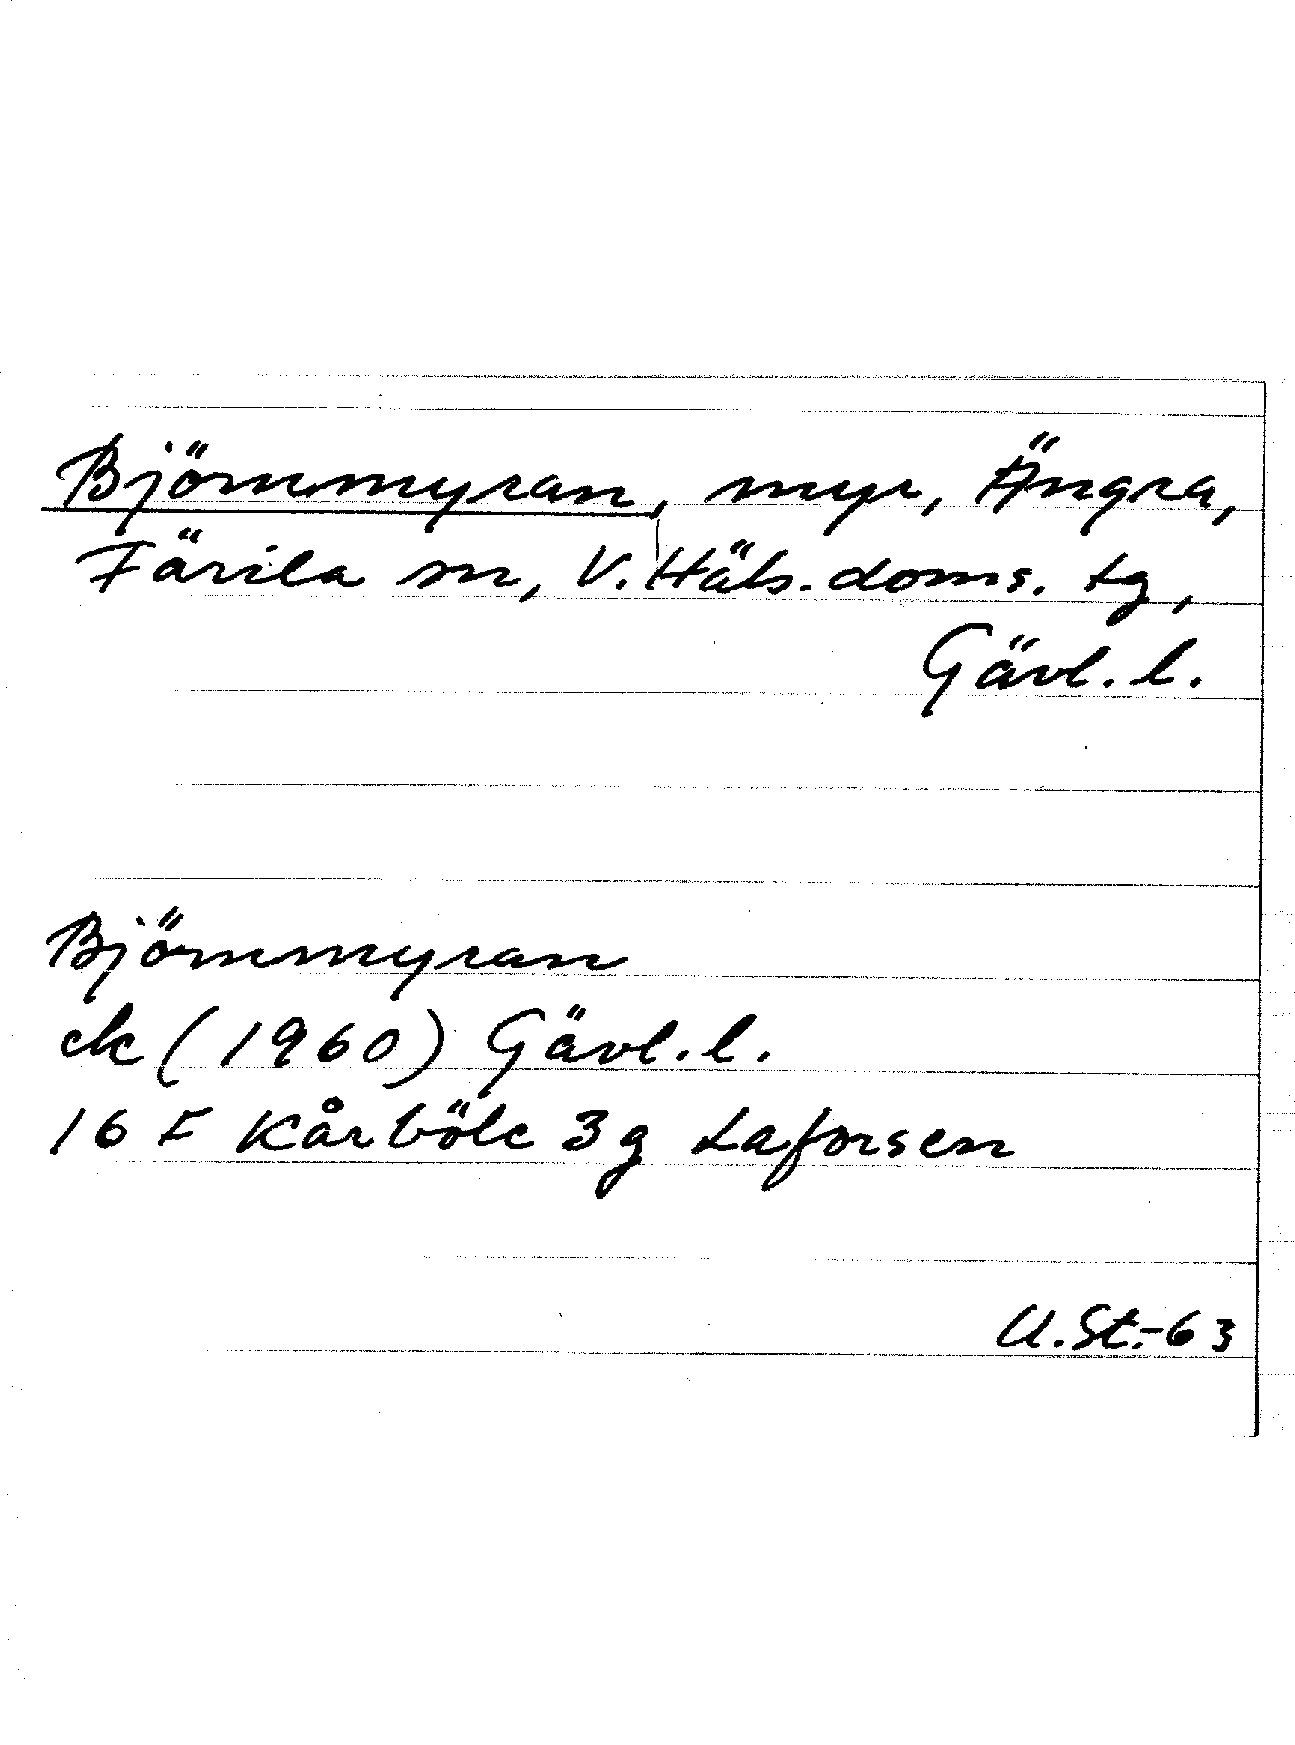 Björnmyran, myr, Ängra,
Färila sn, V. Häls. doms. tg,
Gävl. l.
Björnmyran
ek (1960) Gävl. l.
16 F Kårböle 3 g Laforsen
U. St.-63